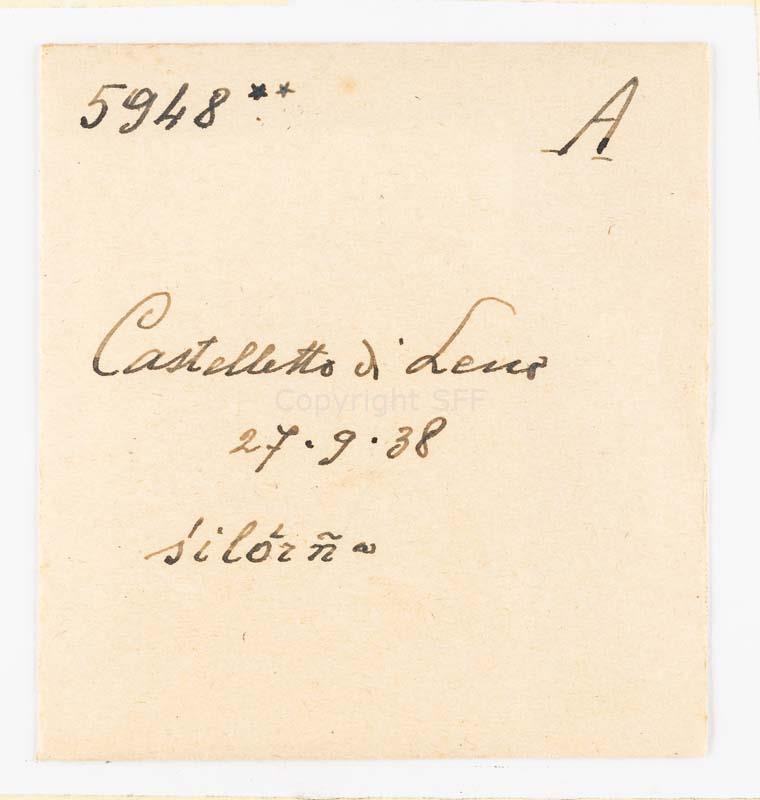 5948 ** A
Castelletto di Leno
Copyright SFF
27·9·38
śilórña